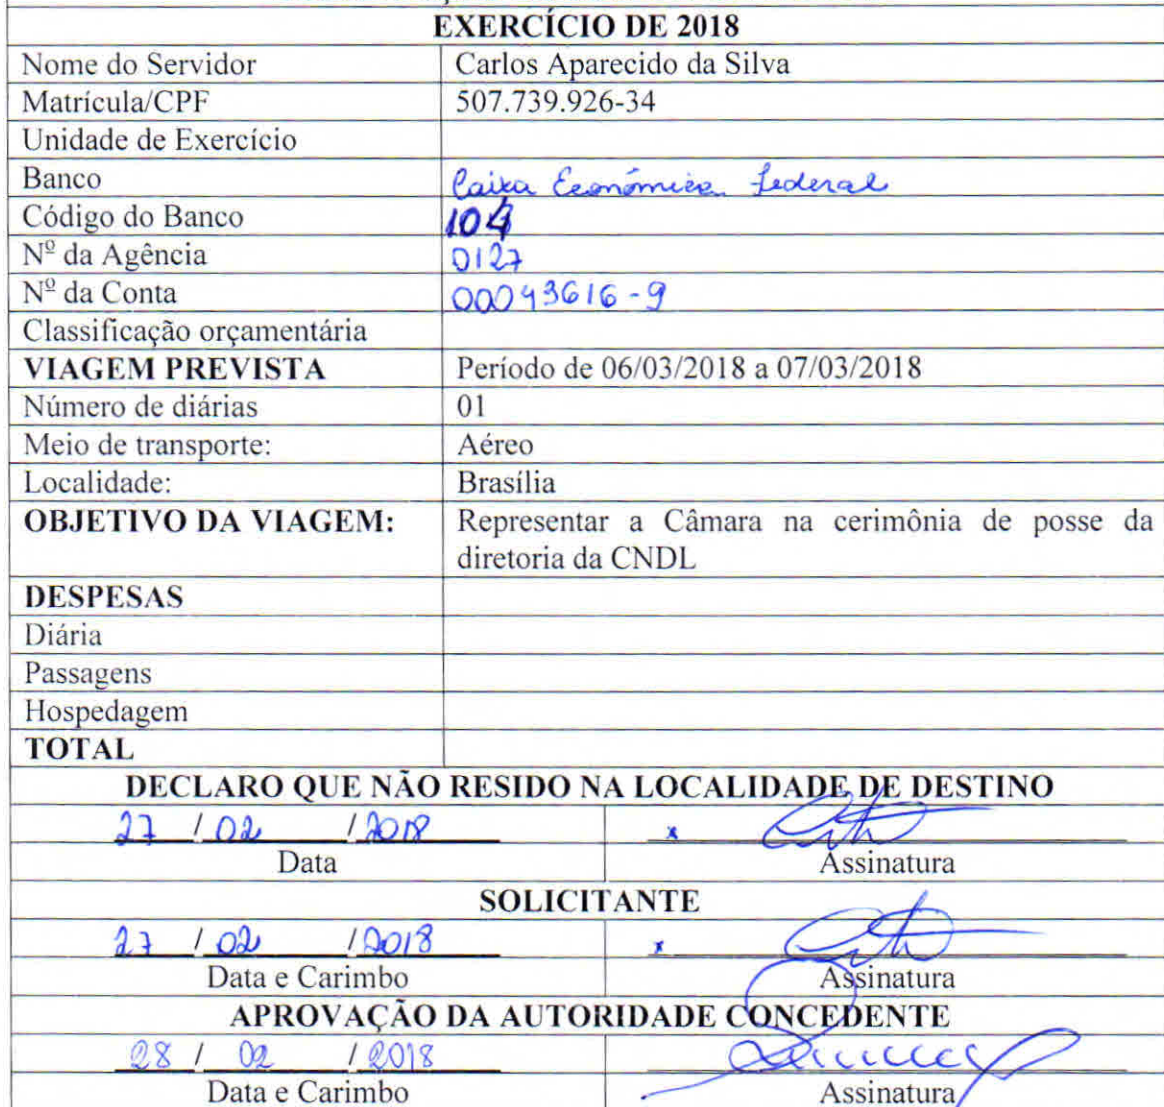 EXERCÍCIO DE 2018
Nome do Servidor Carlos Aparecido da Silva
Matrícula/CPF 507.739.926-34
Unidade de Exercício
Banco Caixa Econômica Federal
Código do Banco 104
Nº da Agência 0127
Nº da Conta 00043616-9
Classificação orçamentária
VIAGEM PREVISTA Período de 06/03/2018 a 07/03/2018
Número de diárias 01
Meio de transporte: Aéreo
Localidade: Brasília
OBJETIVO DA VIAGEM: Representar a Câmara na cerimônia de posse da
diretoria da CNDL
DESPESAS
Diária
Passagens
Hospedagem
TOTAL
DECLARO QUE NÃO RESIDO NA LOCALIDADE DE DESTINO
27 / 02 / 2018 x
Data Assinatura
SOLICITANTE
27 / 02 / 2018 x
Data e Carimbo Assinatura
APROVAÇÃO DA AUTORIDADE CONCEDENTE
28 / 02 / 2018
Data e Carimbo Assinatura